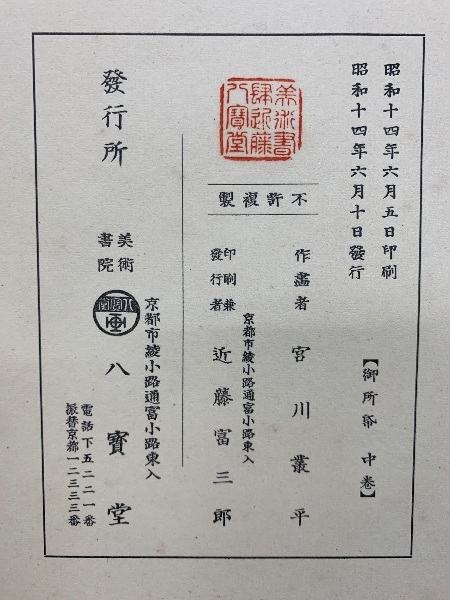 昭和十四年六月五日印刷
昭和十四年六月十日發行
【御所帋 中巻】
美術書
肆近藤
八寶堂
不許複製
作畫者 宮川叢平
京都市綾小路通富小路東入
印刷兼
發行者 近藤富三郎
發行所
京都市綾小路通富小路東入
美術
書院 八寶堂
電話下五二二一番
振替京都一二三三三番